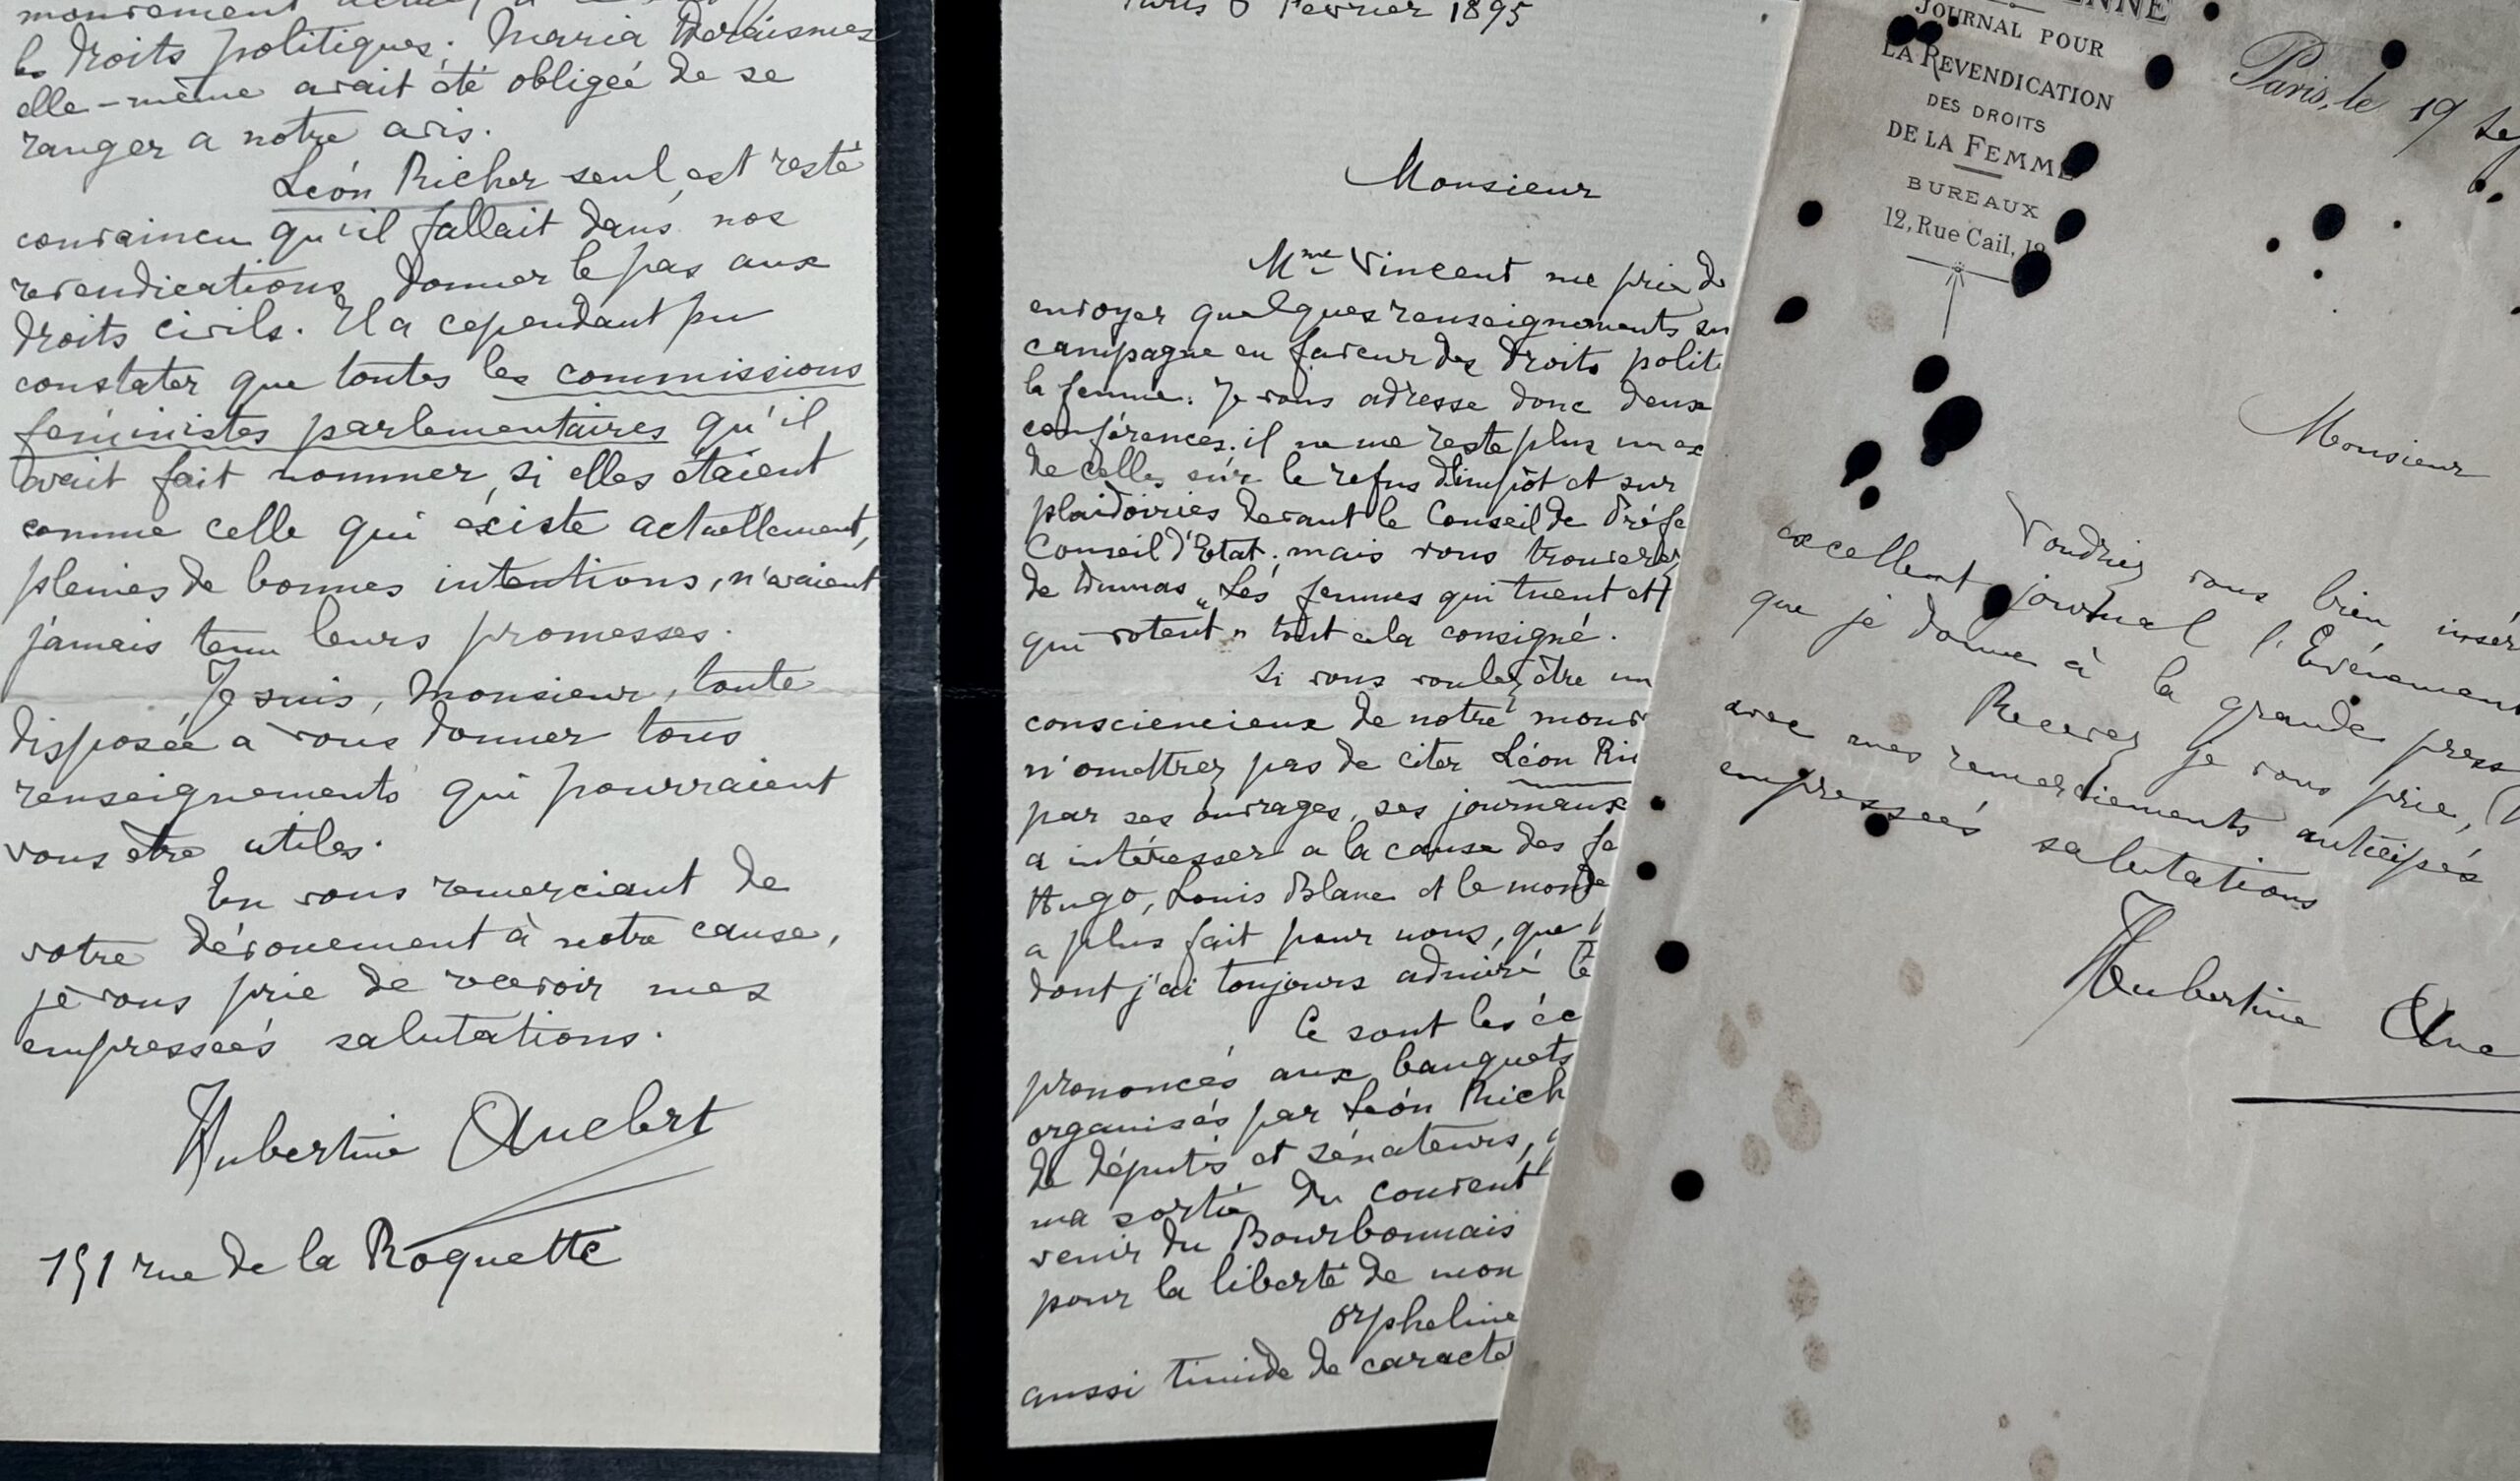 les droits politiques. Maria Deraismes
elle-même avait été obligée de se
ranger a notre avis.
Léon Richer seul est resté
convaincu qu'il fallait dans nos
revendications donner le pas aux
droits civils. Il a cependant pu
constater que toutes les commissions
féministes parlementaires qu'il
avait fait nommer, si elles étaient
comme celle qui existe actuellement,
pleines de bonnes intentions, n'avaient
jamais tenu leurs promesses.
Je suis, Monsieur, toute
disposée a vous donner tous
renseignements qui pourraient
vous être utiles.
En vous remerciant de
votre dévouement à notre cause,
je vous prie de recevoir mes
empressées salutations.
Hubertine Auclert
151 rue de la Roquette
Paris Février 1895
Monsieur
Mme Vincent me prie d
envoyer quelques renseignements su
campagne en faveur des droits polit
la femme. Je vous adresse donc deux
conférences. il ne me reste plus un ex
de celles sur le refus d'impôt et sur
plaidoiries devant le Conseil de Préfe
Conseil d'Etat; mais vous trouverez
de Dumas "Les femmes qui tuent et
qui votent" tout cela consigné.
Si vous voulez être un
consciencieux de notre mouv
n'omettrez pas de citer Léon Ri
par ses ouvrages, ses journaux
a intéresser a la cause des fe
Hugo, Louis Blanc et le monde
a plus fait pour nous, que
dont j'ai toujours admiré le
Ce sont les éc
prononcés aux banquets
organisés par Léon Rich
de députés et sénateurs,
ma sortie du couvent
venir du Bourbonnais
pour la liberté de mon
orpheline
aussi timide de caractè
ENNE
JOURNAL POUR
LA REVENDICATION
DES DROITS
DE LA FEMME
BUREAUX
12, Rue Cail, 12
Paris, le 19 Se
Monsieur
Voudriez vous bien insér
excellent journal l'Evénement
que je donne à la grande press
Recevez je vous prie,
avec mes remerciements anticipés
empressées salutations
Hubertine Auc